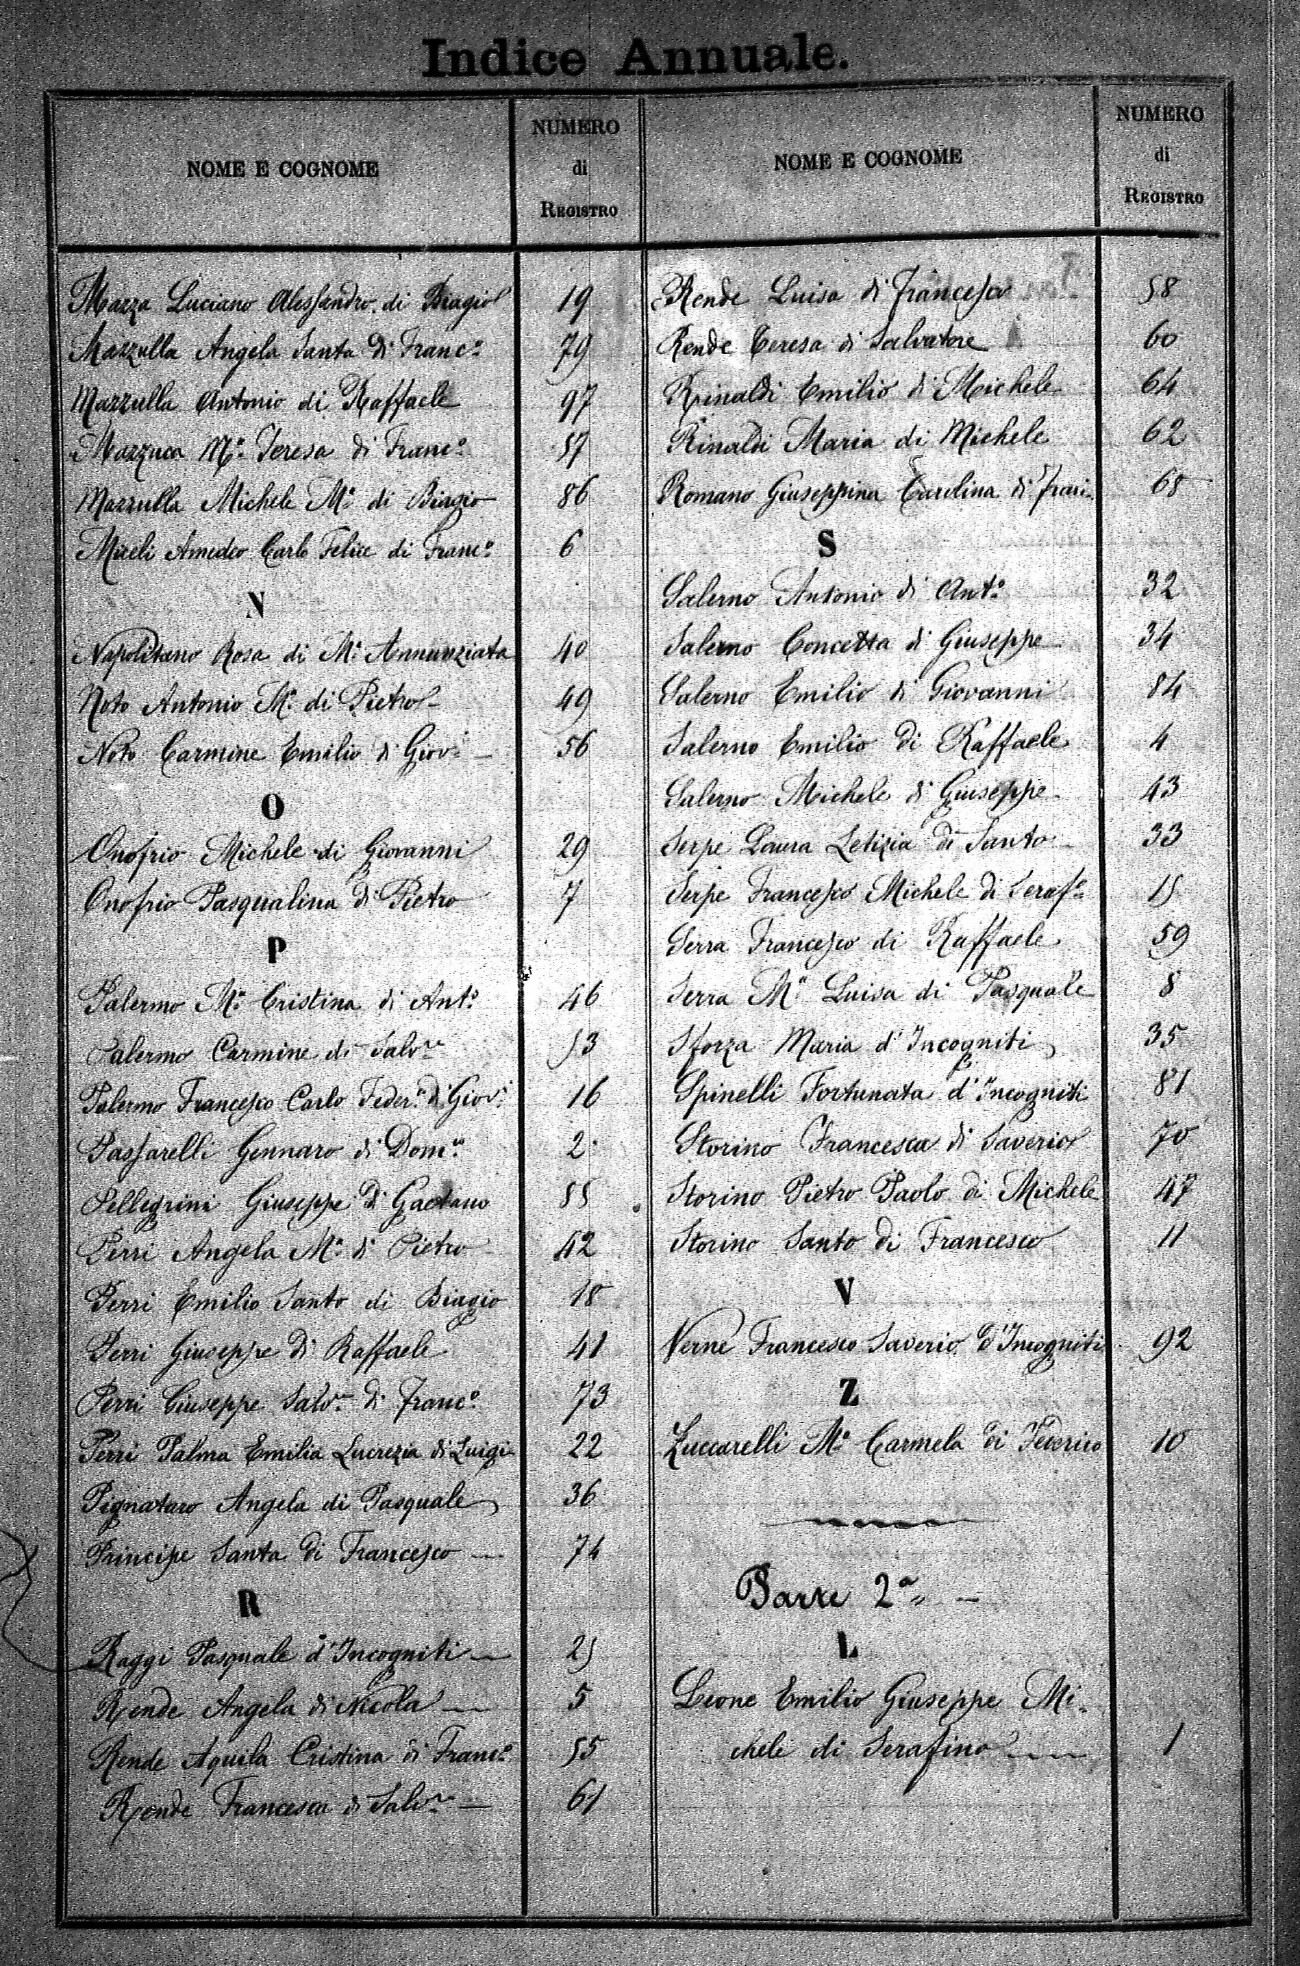 Indice Annuale.
NOME E COGNOME
NUMERO
di
REGISTRO
Mazza Luciano Alessandro di Biagio 19
Mazzulla Angela Santa di Franc.º 79
Mazzulla Antonio di Raffaele 97
Mazzuca M.ª Teresa di Franc.º 57
Mazzulla Michele M.ª di Biagio 86
Miceli Amedeo Carlo Felice di Franc.º 6
N
Napolitano Rosa di M.ª Annunziata 40
Noto Antonio M.ª di Pietro 49
Noto Carmine Emilio di Giov.i 56
O
Onofrio Michele di Giovanni 29
Onofrio Pasqualina di Pietro 7
P
Palermo M.ª Cristina di Ant.º 46
Palermo Carmine di Salv.re 53
Palermo Francesco Carlo Feder.º di Giov.i 16
Passarelli Gennaro di Dom.co 2
Pellegrini Giuseppe di Gaetano 85
Perri Angela M.ª di Pietro 42
Perri Emilio Santo di Biagio 18
Perri Giuseppe di Raffaele 41
Perri Giuseppe Salv.re di Franc.º 73
Perri Palma Emilia Lucrezia di Luigi 22
Pignataro Angela di Pasquale 36
Principe Santa di Francesco 74
R
Raggi Pasquale d'Incogniti 25
Rende Angela di Nicola 5
Rende Aquila Cristina di Franc.º 55
Rende Francesca di Salv.re 61
NOME E COGNOME
NUMERO
di
REGISTRO
Rende Luisa di Francesco 58
Rende Teresa di Salvatore 60
Rinaldi Emilio di Michele 64
Rinaldi Maria di Michele 62
Romano Giuseppina Carolina di Fran. 68
S
Salerno Antonio di Ant.º 32
Salerno Concetta di Giuseppe 34
Salerno Emilio di Giovanni 84
Salerno Emilio di Raffaele 4
Salerno Michele di Giuseppe 43
Serpe Laura Letizia di Santo 33
Serpe Francesco Michele di Seraf.º 15
Serra Francesco di Raffaele 59
Serra M.ª Luisa di Pasquale 8
Sforza Maria d'Incogniti 35
Spinelli Fortunata d'Incogniti 81
Storino Francesca di Saverio 70
Storino Pietro Paolo di Michele 47
Storino Santo di Francesco 11
V
Verne Francesco Saverio d'Incogniti 92
Z
Zuccarelli M.ª Carmela di Federico 10
Parte 2ª
L
Leone Emilio Giuseppe Mi-
chele di Serafino 1